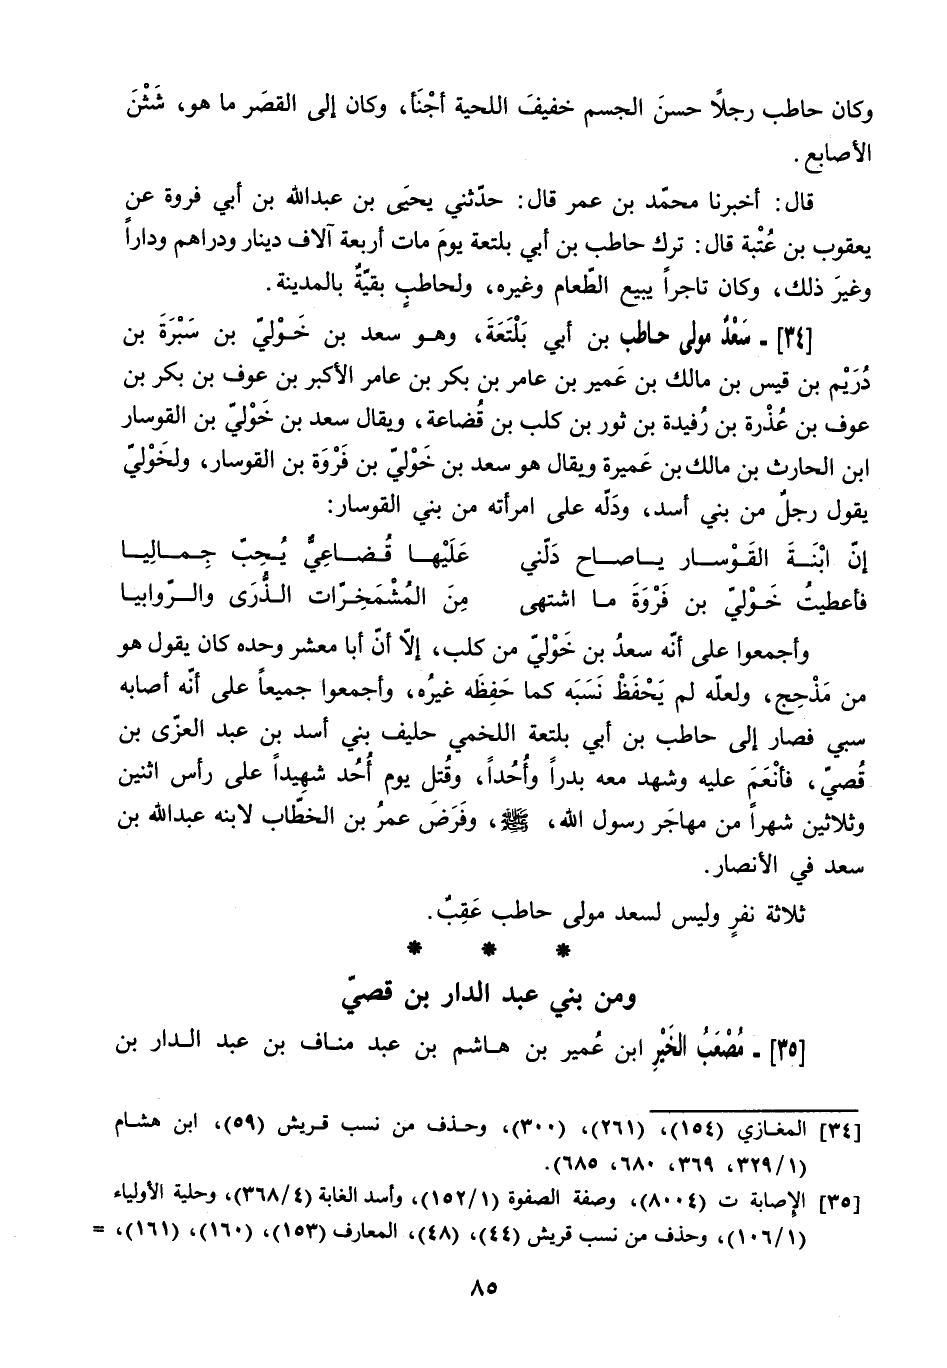 وكان حاطب رجلاً حسنَ الجسم خفيفَ اللحية أجْنَأ، وكان إلى القصَر ما هو، شَثْنَ
الأصابع.
قال: أخبرنا محمّد بن عمر قال: حدّثني يحيَى بن عبدالله بن أبي فروة عن
يعقوب بن عُتْبة قال: ترك حاطب بن أبي بلتعة يومَ مات أربعة آلاف دينار ودراهم وداراً
وغيرَ ذلك، وكان تاجراً يبيع الطّعام وغيره، ولحاطبٍ بقيّةٌ بالمدينة.
[٣٤] ـ سَعْدٌ مولى حاطب بن أبي بَلْتَعَةَ، وهـو سعد بن خَـوْليّ بن سَبْرَةَ بن
دُرَيْم بن قيس بن مالك بن عَمير بن عامر بن بكر بن عامر الأكبر بن عوف بن بكر بن
عوف بن عُذْرة بن رُفيدة بن ثور بن كلب بن قُضاعة، ويقال سعد بن خَوْليّ بن القوسار
ابن الحارث بن مالك بن عَميرة ويقال هو سعد بن خَوْليّ بن فَرْوَة بن القوسار، ولخَوْليّ
يقول رجلٌ من بني أسد، ودَلّه على امرأته من بني القوسار:
إنّ ابْنَـةَ القَوْسـار يـاصـاح دَلّني عَلَيْهـا قُـضـاعِيٌّ يُـحِبّ جِـمـالِيـا
فأعطيتُ خَـوْليّ بن فَرْوَةَ مـا اشتهى مِنَ المُشْمَخِـرّات الـذُّرَى والـرّوابيـا
وأجمعوا على أنّه سعدُ بن خَوْليّ من كلب، إلاّ أنّ أبا معشر وحده كان يقول هو
من مَذْحِج، ولعلّه لم يَحْفَظْ نَسَبَه كما حَفِظَه غيرُه، وأجمعوا جميعاً على أنّه أصابه
سبي فصار إلى حاطب بن أبي بلتعة اللخمي حليف بني أسد بن عبد العزّى بن
قُصيّ، فأنْعَمَ عليه وشهد معه بدراً وأُحُداً، وقُتل يوم أُحُد شهيداً على رأس اثنين
وثلاثين شهراً من مهاجَر رسول الله، ﷺ، وفَرَضَ عمرُ بن الخطّاب لابنه عبدالله بن
سعد في الأنصار.
ثلاثة نفرٍ وليس لسعد مولى حاطب عَقِبٌ.
* * *
ومن بني عبد الدار بن قصيّ
[٣٥] ـ مُصْعَبُ الخَيْرِ ابن عُمير بن هـاشم بن عبد منـاف بن عبد الـدار بن
[٣٤] المغـازي (١٥٤)، (٢٦١)، (٣٠٠)، وحـذف من نسب قـريش (٥٩)، ابن هشـام
(١/٣٢٩، ٣٦٩، ٦٨٠، ٦٨٥).
[٣٥] الإصابة ت (٨٠٠٤)، وصفة الصفوة (١/١٥٢)، وأسد الغابة (٤/٣٦٨)، وحلية الأولياء
(١/١٠٦)، وحذف من نسب قريش (٤٤)، (٤٨)، المعارف (١٥٣)، (١٦٠)، (١٦١)، =
٨٥